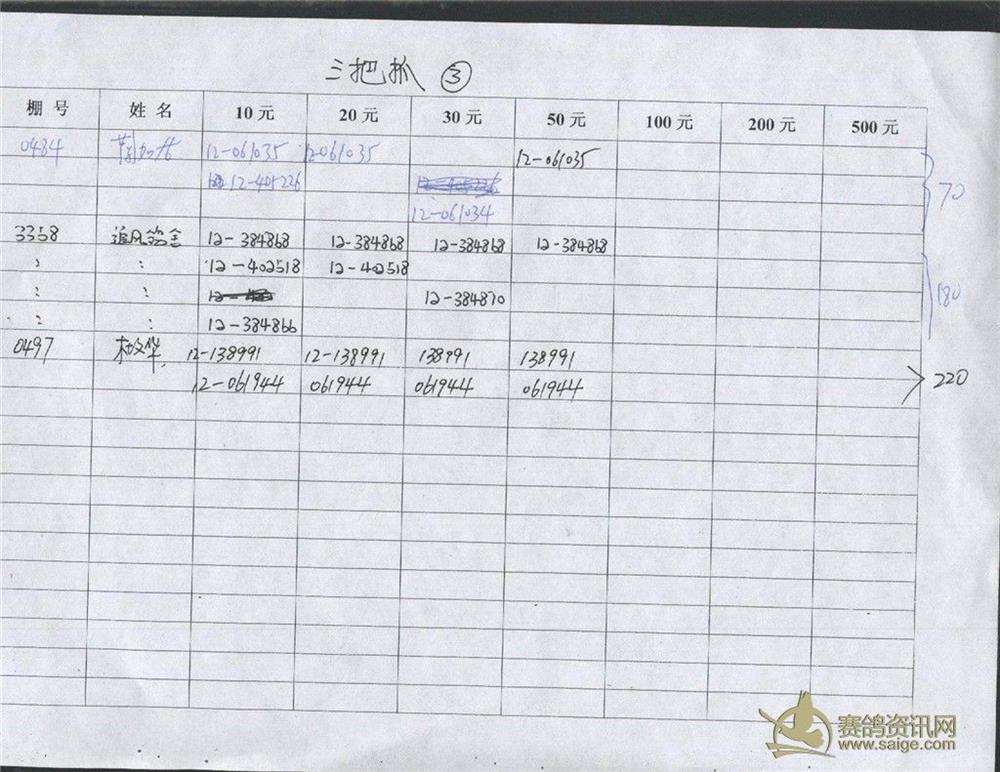 三把抓 ③
棚号 姓名 10元 20元 30元 50元 100元 200元 500元
0484 12-061035 12-061035 12-061035
12-405226
12-061034
70
3358 12-384868 12-384868 12-384868 12-384868
: : 12-402518 12-402518
: : 12-384870
: : 12-384866
180
0497 12-138991 12-138991 138991 138991
12-061944 061944 061944 061944
220
赛鸽资讯网
www.saige.com